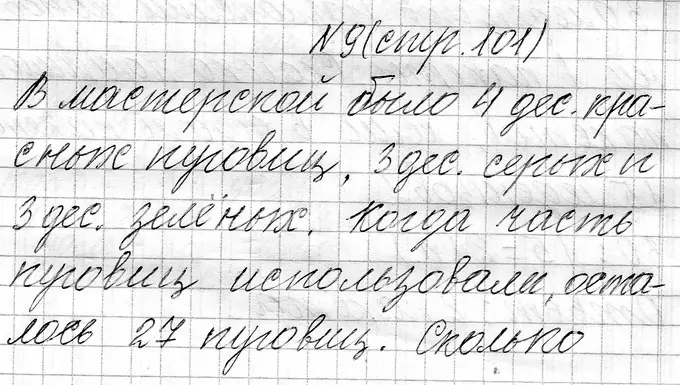 N9(стр.101)
В мастерской было 4 дес. кра-
сных пуговиц, 3 дес. серых и
3 дес. зелёных. Когда часть
пуговиц использовали, оста-
лось 27 пуговиц. Сколько